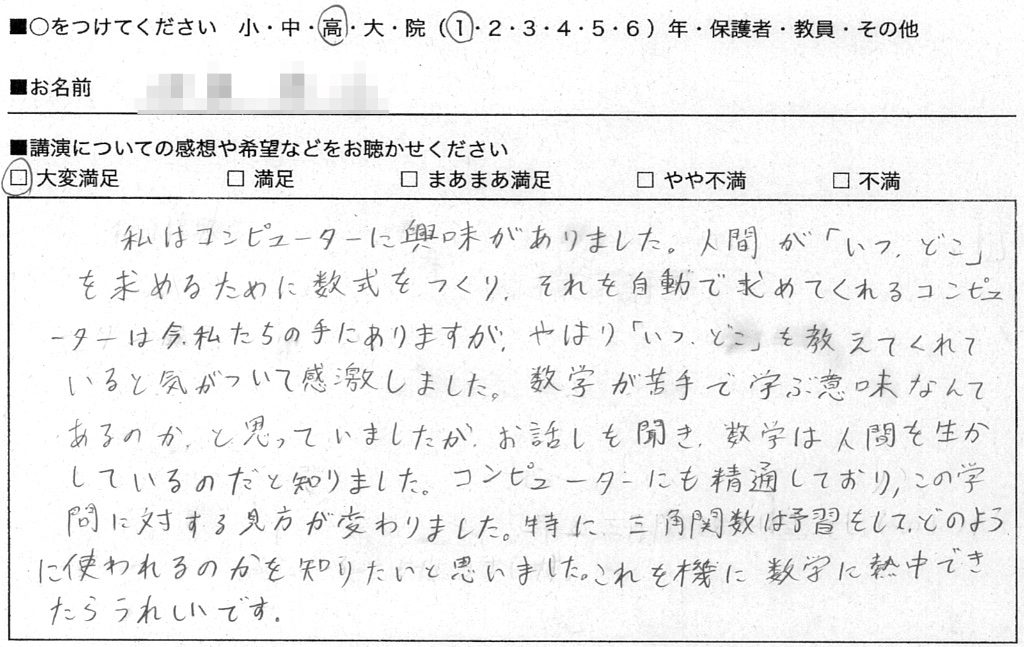 ■○をつけてください 小・中・高・大・院(1・2・3・4・5・6)年・保護者・教員・その他
■お名前
■講演についての感想や希望などをお聴かせください
□ 大変満足 □ 満足 □ まあまあ満足 □ やや不満 □ 不満
私はコンピューターに興味がありました。人間が「いつ、どこ」
を求めるために数式をつくり、それを自動で求めてくれるコンピュ
ーターは今、私たちの手にありますが、やはり「いつ、どこ」を教えてくれて
いると気がついて感激しました。数学が苦手で学ぶ意味なんて
あるのか、と思っていましたが、お話しを聞き、数学は人間を生か
しているのだと知りました。コンピューターにも精通しており、この学
問に対する見方が変わりました。特に、三角関数は予習をして、どのよう
に使われるのかを知りたいと思いました。これを機に数学に熱中でき
たらうれしいです。